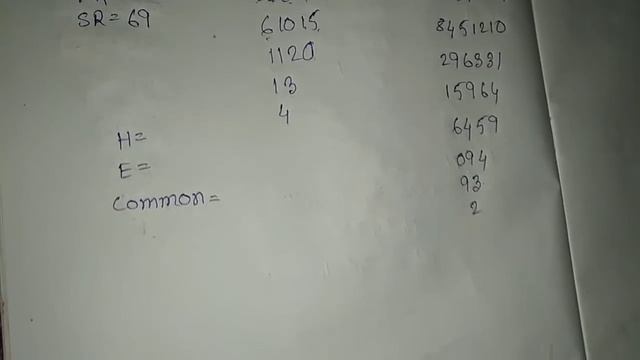 SR = 69
61015
1120
13
4
8451210
296331
15964
6459
094
93
2
H=
E=
Common=